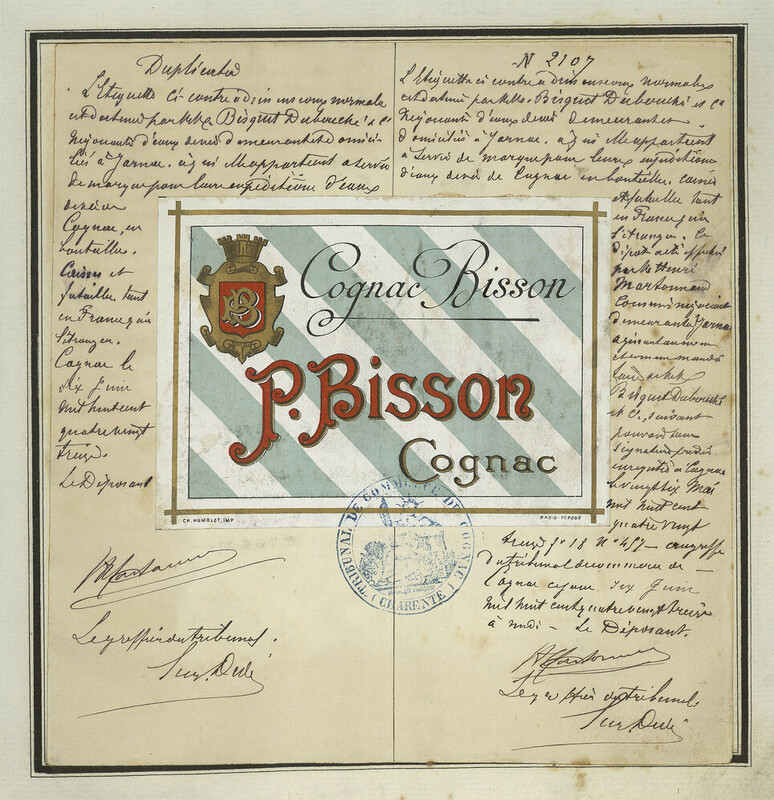 Duplicata
L'Etiquette ci contre a dimensions normale
et détenue par MM. Bisquit Dubouché & Cie
Négociants d'eaux devie demeurant et domici-
liés à Jarnac. à qui elle appartient a servir
de marque pour leurs expéditions d'eaux
devie de
Cognac, en
bouteilles.
Caisses et
futailles tant
en France qu'a
l'étranger.
Cognac le
six Juin
mil huit cent
quatre vingt
treize.
Le Déposant
Le greffier du tribunal.
N 2107
L'Etiquette ci contre a dimensions normales
est détenue par MM. Bisquit Dubouché et Cie
Négociants d'eaux devie demeurant et
domiciliés à Jarnac. à qui elle appartient
à servir de marque pour leurs expéditions
d'eaux de vie de Cognac en bouteilles. caisses
et futailles tant
en France qu'à
l'étranger. Ce
dépot a été effectué
par M. Henri
Commis négociant
demeurant à Jarnac
agissant au nom
et comme mandataire
de MM.
Bisquit Dubouché
et Cie, suivant
pouvoir sous
signature privée
enregistré à Cognac
le vingt six Mai
mil huit cent
quatre vingt
treize fo 18 No 457 — au greffe
du tribunal de commerce de
Cognac ce jour six Juin
mil huit cent quatre vingt treize
à midi — Le Déposant.
Le greffier du tribunal
Cognac Bisson
PB
P. Bisson
Cognac
CH. HUMBLOT, IMP
PARIS DÉPOSÉ
TRIBUNAL DE COMMERCE DE COGNAC
(CHARENTE)